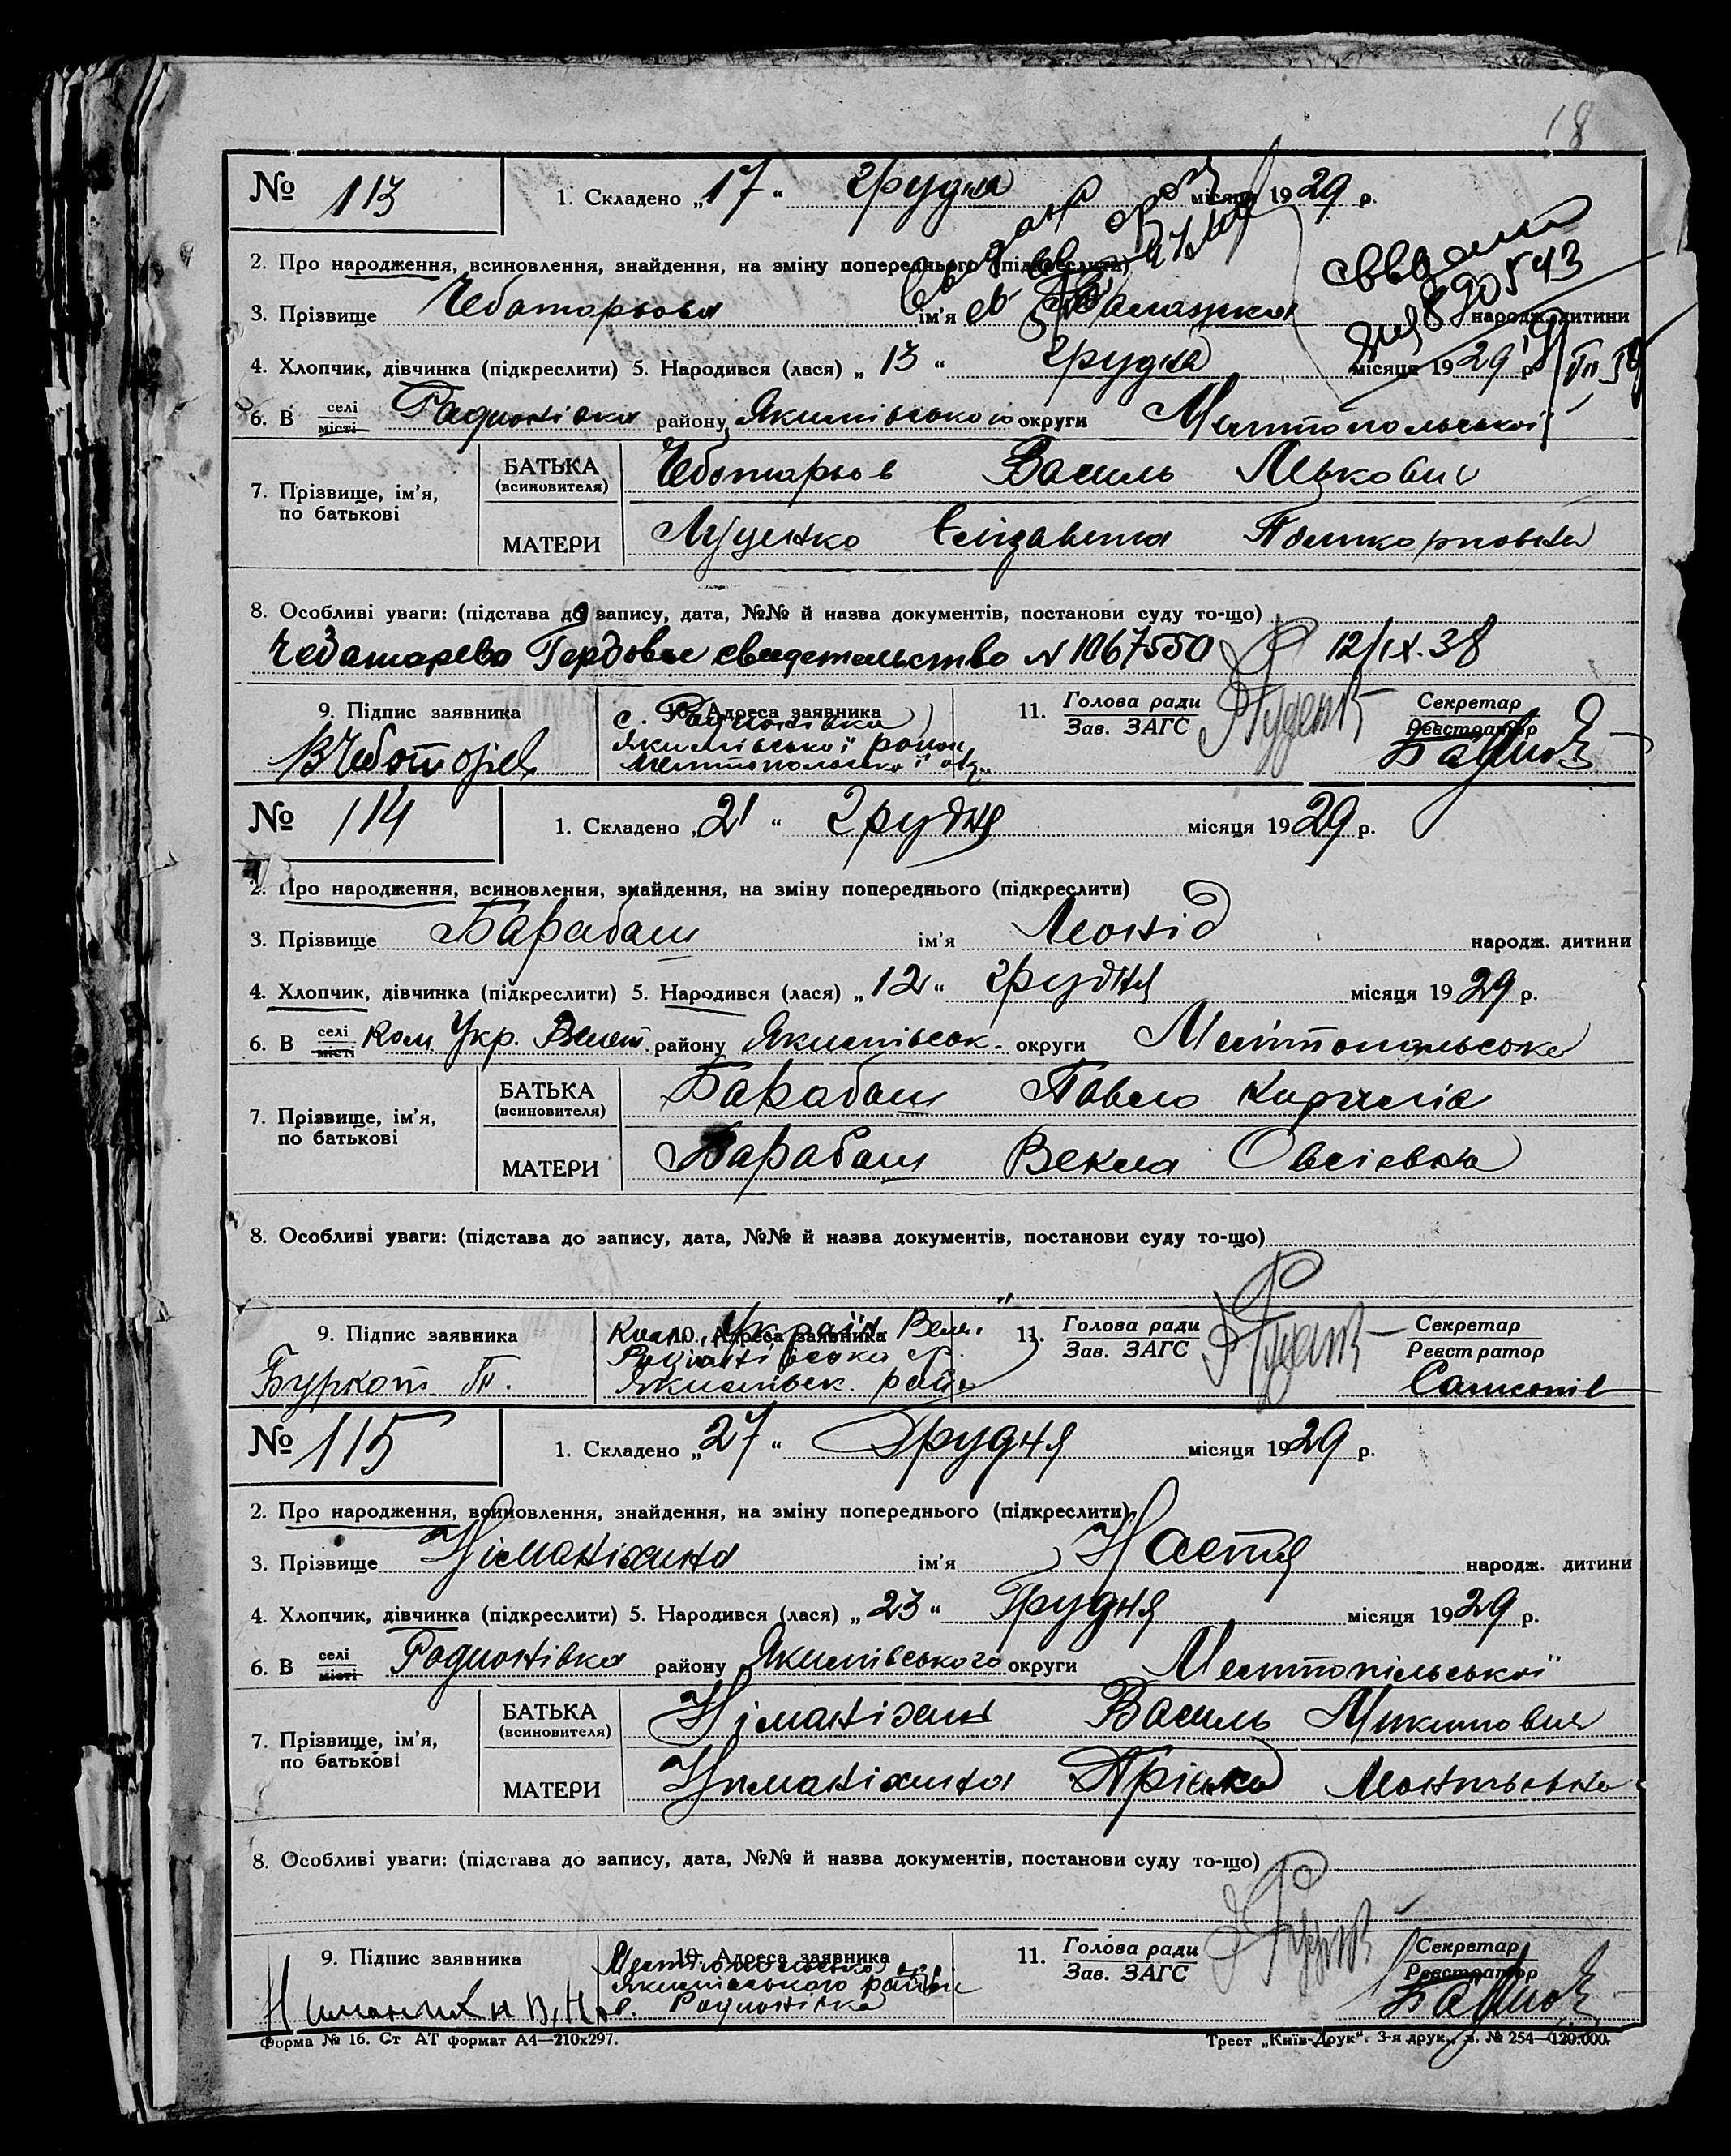 18
№ 113
1. Складено „17“ грудня місяця 1929 р.
2. Про народження, всиновлення, знайдення, на зміну попереднього (підкреслити)
3. Прізвище Чеботарьова ім'я народж. дитини
890543
4. Хлопчик, дівчинка (підкреслити) 5. Народився (лася) „13“ грудня місяця 1929 р.
6. В селі місті Радионівка району Якимівського округи Мелітопольської
7. Прізвище, ім'я, по батькові
БАТЬКА (всиновителя) Чеботарьов Василь
МАТЕРИ Луценко Єлізавета Поликарповна
8. Особливі уваги: (підстава до запису, дата, №№ й назва документів, постанови суду то-що)
Чеботарева свидетельство N 1067550 12/IX.38
9. Підпис заявника
В Чеботорев
10. Адреса заявника
с. Радионівка
Якимівської район
Мелітопольської окр.
11. Голова ради Зав. ЗАГС
Секретар Реєстратор
№ 114
1. Складено „21“ Грудня місяця 1929 р.
2. Про народження, всиновлення, знайдення, на зміну попереднього (підкреслити)
3. Прізвище Барабаш ім'я Леонід народж. дитини
4. Хлопчик, дівчинка (підкреслити) 5. Народився (лася) „12“ грудня місяця 1929 р.
6. В селі місті Ком. Укр. Велет. району Якимівськ. округи Мелітопольська
7. Прізвище, ім'я, по батькові
БАТЬКА (всиновителя) Барабаш Павло
МАТЕРИ Барабаш Векла Овсієвна
8. Особливі уваги: (підстава до запису, дата, №№ й назва документів, постанови суду то-що)
„
9. Підпис заявника
Буркот П.
10. Адреса заявника
Ком. Україн. Веле.
Радіонівська ср.
Якимівськ. район
11. Голова ради Зав. ЗАГС
Секретар Реєстратор
№ 115
1. Складено „27“ Грудня місяця 1929 р.
2. Про народження, всиновлення, знайдення, на зміну попереднього (підкреслити)
3. Прізвище Німаніхина ім'я Настя народж. дитини
4. Хлопчик, дівчинка (підкреслити) 5. Народився (лася) „23“ Грудня місяця 1929 р.
6. В селі місті Радионівка району Якимівського округи Мелітопільської
7. Прізвище, ім'я, по батькові
БАТЬКА (всиновителя) Німаніхин Василь Микитович
МАТЕРИ Ниманіхина Орішка
8. Особливі уваги: (підстава до запису, дата, №№ й назва документів, постанови суду то-що)
9. Підпис заявника
10. Адреса заявника
Якимівського район
Радионівка
11. Голова ради Зав. ЗАГС
Секретар Реєстратор
Форма № 16. Ст АТ формат А4—210х297.
Трест „Київ-Друк“. 3-я друк., з. № 254—120.000.